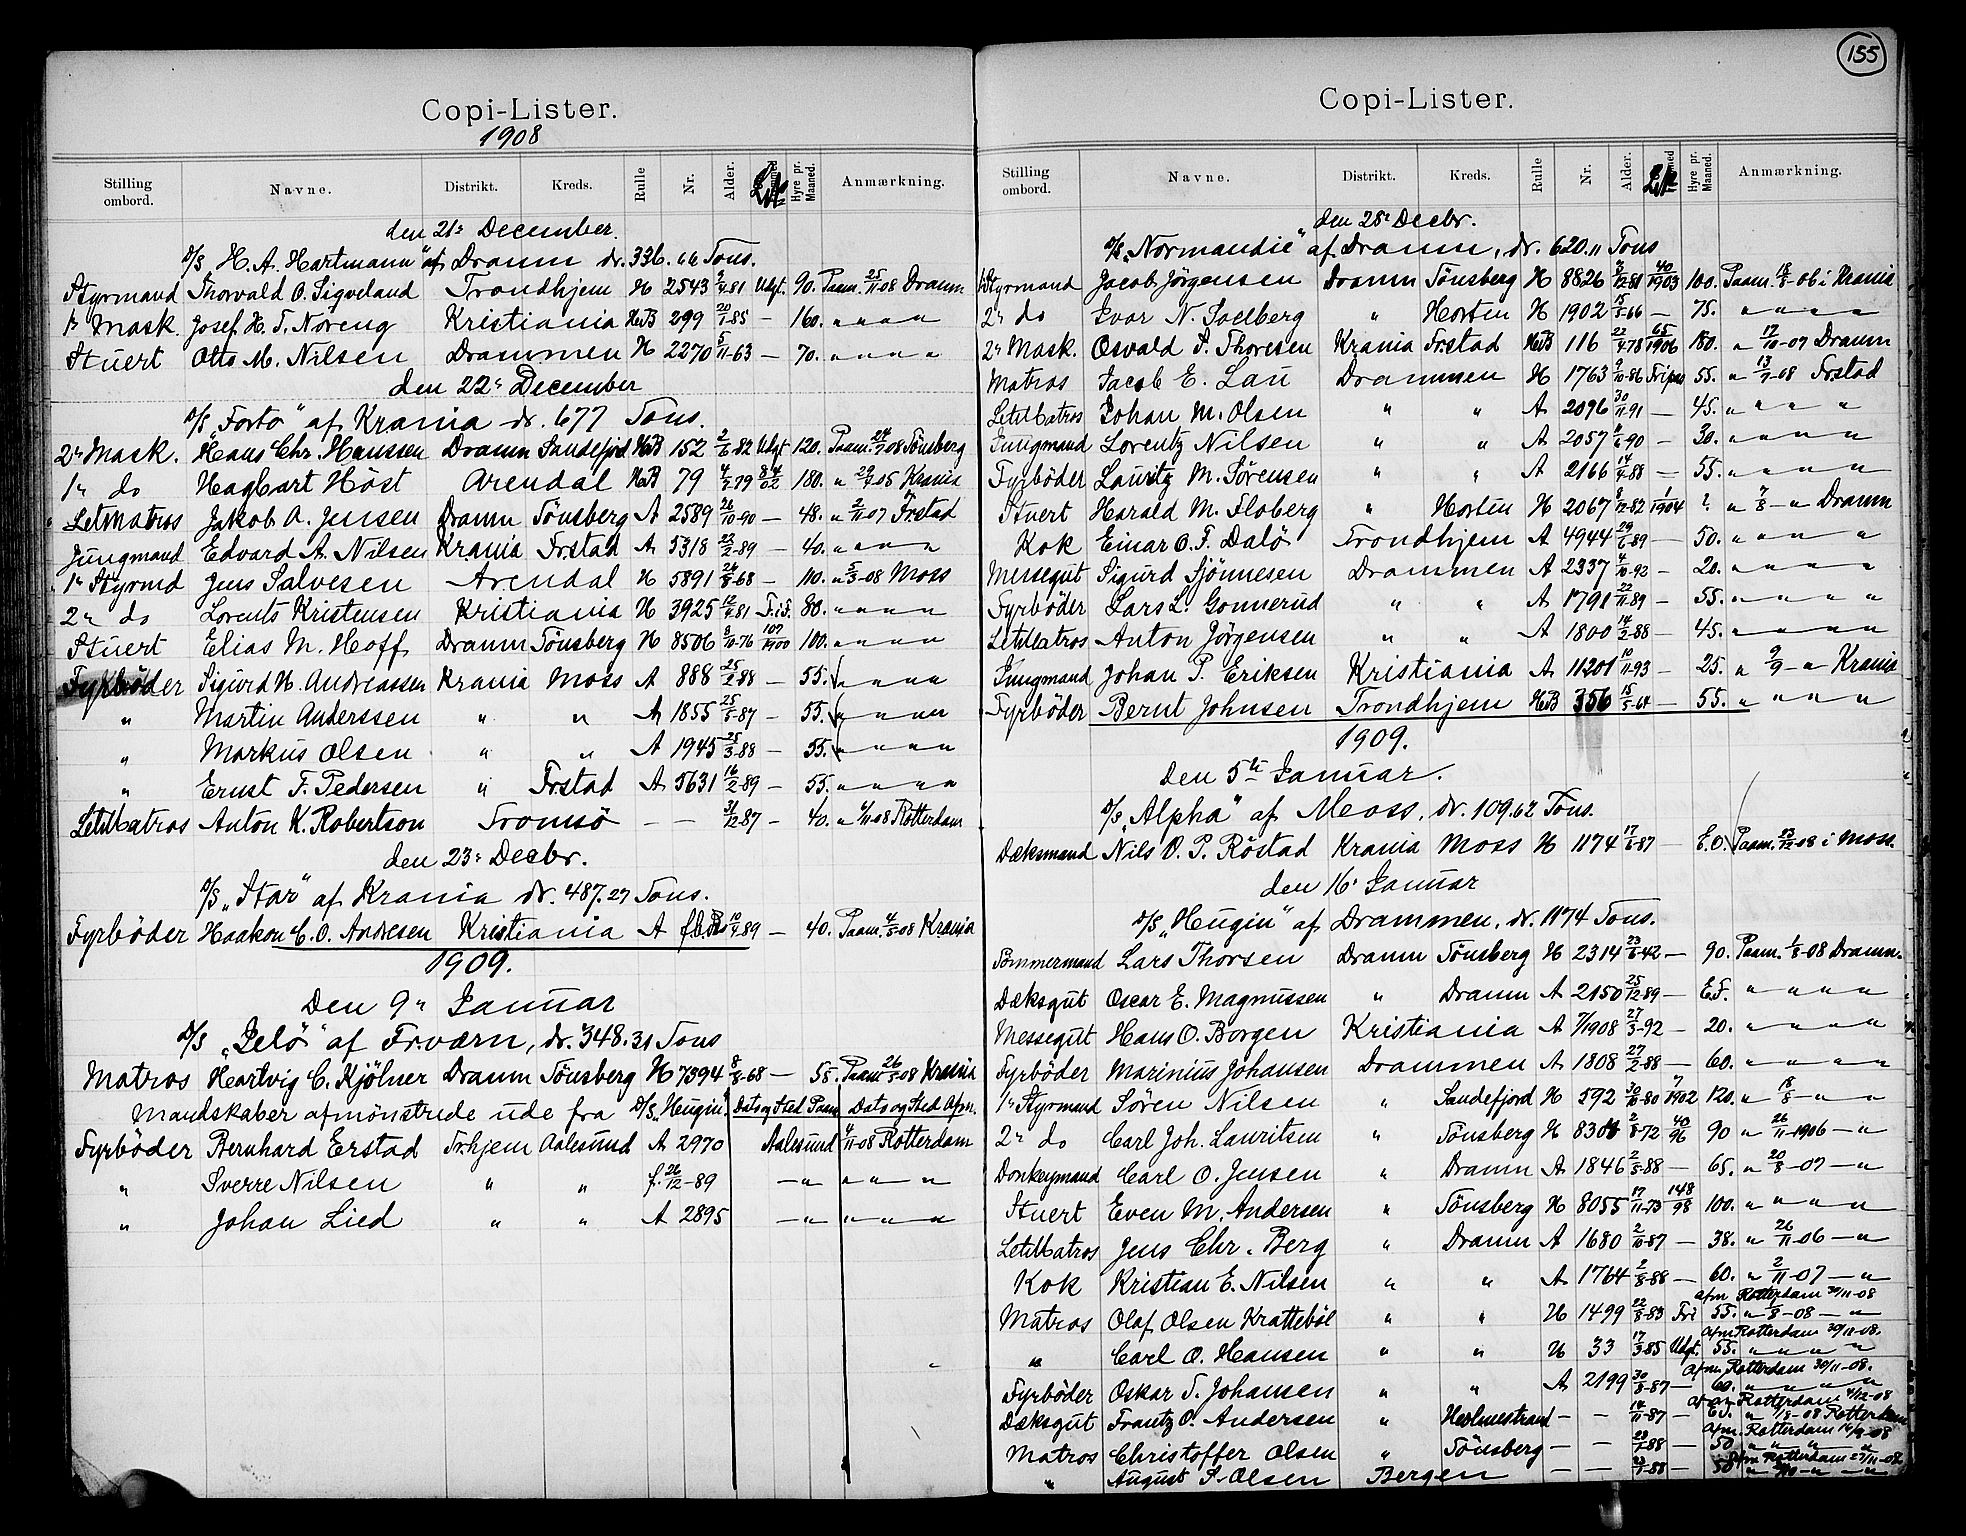 155
Copi-Lister.
1908
Stilling ombord. Navne. Distrikt. Kreds. Rulle Nr. Alder. Hyre pr. Maaned. Anmærkning.
den 21n December.
D/S „H. A. Hartmann" af Dramn dr. 336.66 Tons.
Styrmand Thorvald O. Sigveland Trondhjem H 2543 Udgt. 90. Paam. 25/11-08 Dramn
1n Mask. Josef H. T. Noreng Kristiania HedB 299 20/1-85 — 160. „ „ „ „
Stuert Otto M. Nilsen Drammen H 2270 3/11-63 — 70. „ „ „ „
den 22n December
D/S „Forto" af Krania dr. 677 Tons.
2n Mask. Hans Chr. Hanssen Dramn Sandefjord HedB 152 2/6-82 Udgt 120. Paam. 24/9-08 Tönsberg
1n do Hagbart Höst Arendal HedB 79 4/7-79 84/02 180. „ 29/9-05 Krania
LetMatros Jakob A. Jensen Dramn Tönsberg A 2589 26/10-90 — 48. „ 2/11-07 Frstad
Jungmand Edvard A. Nilsen Krania Frstad A 5318 23/2-89 — 40. „ „ „ „
1n Styrmd Jens Salvesen Arendal H 5891 26/8-68 — 110. „ 5/3-08 Moss
2n do Lorents Kristensen Kristiania H 3925 12/9-81 F.i.F. 80. „ „ „ „
Stuert Elias M. Hoff Dramn Tönsberg H 8506 8/10-76 107/1900 100. „ „ „ „
Fyrböder Sigurd H. Andreassen Krania Moss A 888 25/2-88 — 55. „ „ „ „
„ Martin Anderssen „ „ A 1855 25/5-87 — 55. „ „ „ „
„ Markus Olsen „ „ A 1945 25/3-88 — 55. „ „ „ „
„ Ernst F. Pedersen „ Frstad A 5631 16/2-89 — 55. „ „ „ „
LetMatros Anton K. Robertson Tromsö — — 31/12-87 — 40. „ 11-08 Rotterdam
den 23n Decbr.
D/S „Star" af Krania dr. 487.27 Tons.
Fyrböder Haakon C. O. Andresen Kristiania A 10/9-89 — 40. Paam. 4/8-08 Krania
1909.
Den 9n Januar
D/S „Jelö" af Fr.værn, dr. 348.31 Tons
Matros Hartvig C. Kjölner Dramn Tönsberg H 7394 8/8-68 — 58. Paam. 26/5-08 Krania
Mandskaber afmönstrede ude fra D/S „Hugin" Dato og Sted Paam Dato og Sted Afm.
Fyrböder Bernhard Erstad Tr.hjem Aalesund A 2970 Aalesund 4/11-08 Rotterdam
„ Sverre Nilsen „ „ f. 26/12-89 — „ „ „ „
„ Johan Lied „ „ A 2895 — „ „ „ „
Copi-Lister.
Stilling ombord. Navne. Distrikt. Kreds. Rulle Nr. Alder. Hyre pr. Maaned. Anmærkning.
den 28n Decbr.
D/S „Normandie" af Dramn, dr. 620.11 Tons
1. Styrmand Jacob Jörgensen Dramn Tönsberg H 8826 12-81 40/1903 100. Paam. 18/8-06 i Krania
2n do Ivar N. Solberg „ Horten H 1902 15/5-66 — 75. „ „ „ „
2n Mask. Osvald S. Thoresen Krania Frstad HedB 116 22/4-78 65/1906 180. „ 17/10-07 Dramn
Matros Jacob E. Lau Drammen H 1763 9/10-86 Fripas 55. „ 13/9-08 Frstad
LetMatros Johan M. Olsen „ „ A 2096 30/11-91 — 45. „ „ „ „
Jungmand Lorentz Nilsen „ „ A 2057 6-90 — 30. „ „ „ „
Fyrböder Lauritz M. Sörensen „ „ A 2166 14/9-88 — 55. „ „ „ „
Stuert Harald M. Floberg „ Horten H 2067 8/12-82 1/1904 ? „ 7/8 — „ Dramn
Kok Einar O. F. Dalö Trondhjem A 4944 29/6-89 — 50. „ „ „ „
Messegut Sigurd Sjönnesen Drammen A 2337 4/10-92 — 20. „ „ „ „
Fyrböder Lars L. Gonnerud „ „ A 1791 22/11-89 — 55. „ „ „ „
LetMatros Anton Jörgensen „ „ A 1800 14/2-88 — 45. „ „ „ „
Jungmand Johan P. Eriksen Kristiania A 11201 10/11-93 — 25. „ 9/9 — „ Krania
Fyrböder Bernt Johnsen Trondhjem HedB 356 15/5-64 — 55. „ „ „ „
1909.
Den 5te Januar.
D/S „Alpha" af Moss, dr. 109.62 Tons.
Dæksmand Nils O. P. Röstad Krania Moss H 1174 17/6-87 — E.O. Paam. 23/12-08 i Moss.
den 16n Januar
D/S „Hugin" af Drammen, dr. 1174 Tons.
Tömmermand Lars Thorsen Dramn Tönsberg H 2314 23/6-42 — 90. Paam. 1/8-08 Dramn.
Dæksgut Oscar E. Magnussen „ Dramn A 2150 25/12-89 — E.F. „ „ „ „
Messegut Hans O. Borgen Kristiania A 7/1908 27/3-92 — 20. „ „ „ „
Fyrböder Marinius Johansen Drammen A 1808 27/2-88 — 60. „ „ „ „
1n Styrmand Sören Nilsen „ Sandefjord H 592 30/10-80 7/1902 120. „ 18/8 — „ „
2n do Carl Joh. Lauritsen „ Tönsberg H 2/8-72 40/96 90 „ 26/11-1906 — „
Donkeymand Carl O. Jensen „ Dramn A 1846 2/8-88 — 65. „ 20/8-07 — „
Stuert Even M. Andersen „ Tönsberg H 8055 17/11-73 148/98 100. „ „ „ „
LetMatros Jens Chr. Berg „ Dramn A 1680 2/10-87 — 38. „ 26/11-06 — „
Kok Kristian E. Nilsen „ „ A 1764 2/8-88 — 60. „ 2/11-07 — „
afm Rotterdam 30/11-08
Matros Olaf Olsen Krattebøl „ „ H 1499 22/8-83 Fri 55. „ 1/8-08 — „
afm Rotterdam 30/11-08.
„ Carl O. Hansen „ „ H 33 17/3-85 Udgt. 55. „ „ „ „
afm Rotterdam 30/11-08.
Fyrböder Oskar T. Johansen „ „ A 2199 30/8-87 — 60. „ „ „ „
afm Rotterdam 4/12-08
Dæksgut Frantz O. Andersen „ Holmestrand — — 14/11-87 — E.F. „ 1/8-08 Rotterdam
afm Rotterdam
Matros Christoffer Olsen „ Tönsberg — — 23/7-88 — 50 „ „ „ „
afm Rotterdam 27/11-08
„ August S. Olsen Bergen — — 23/7-88 — 50 „ „ „